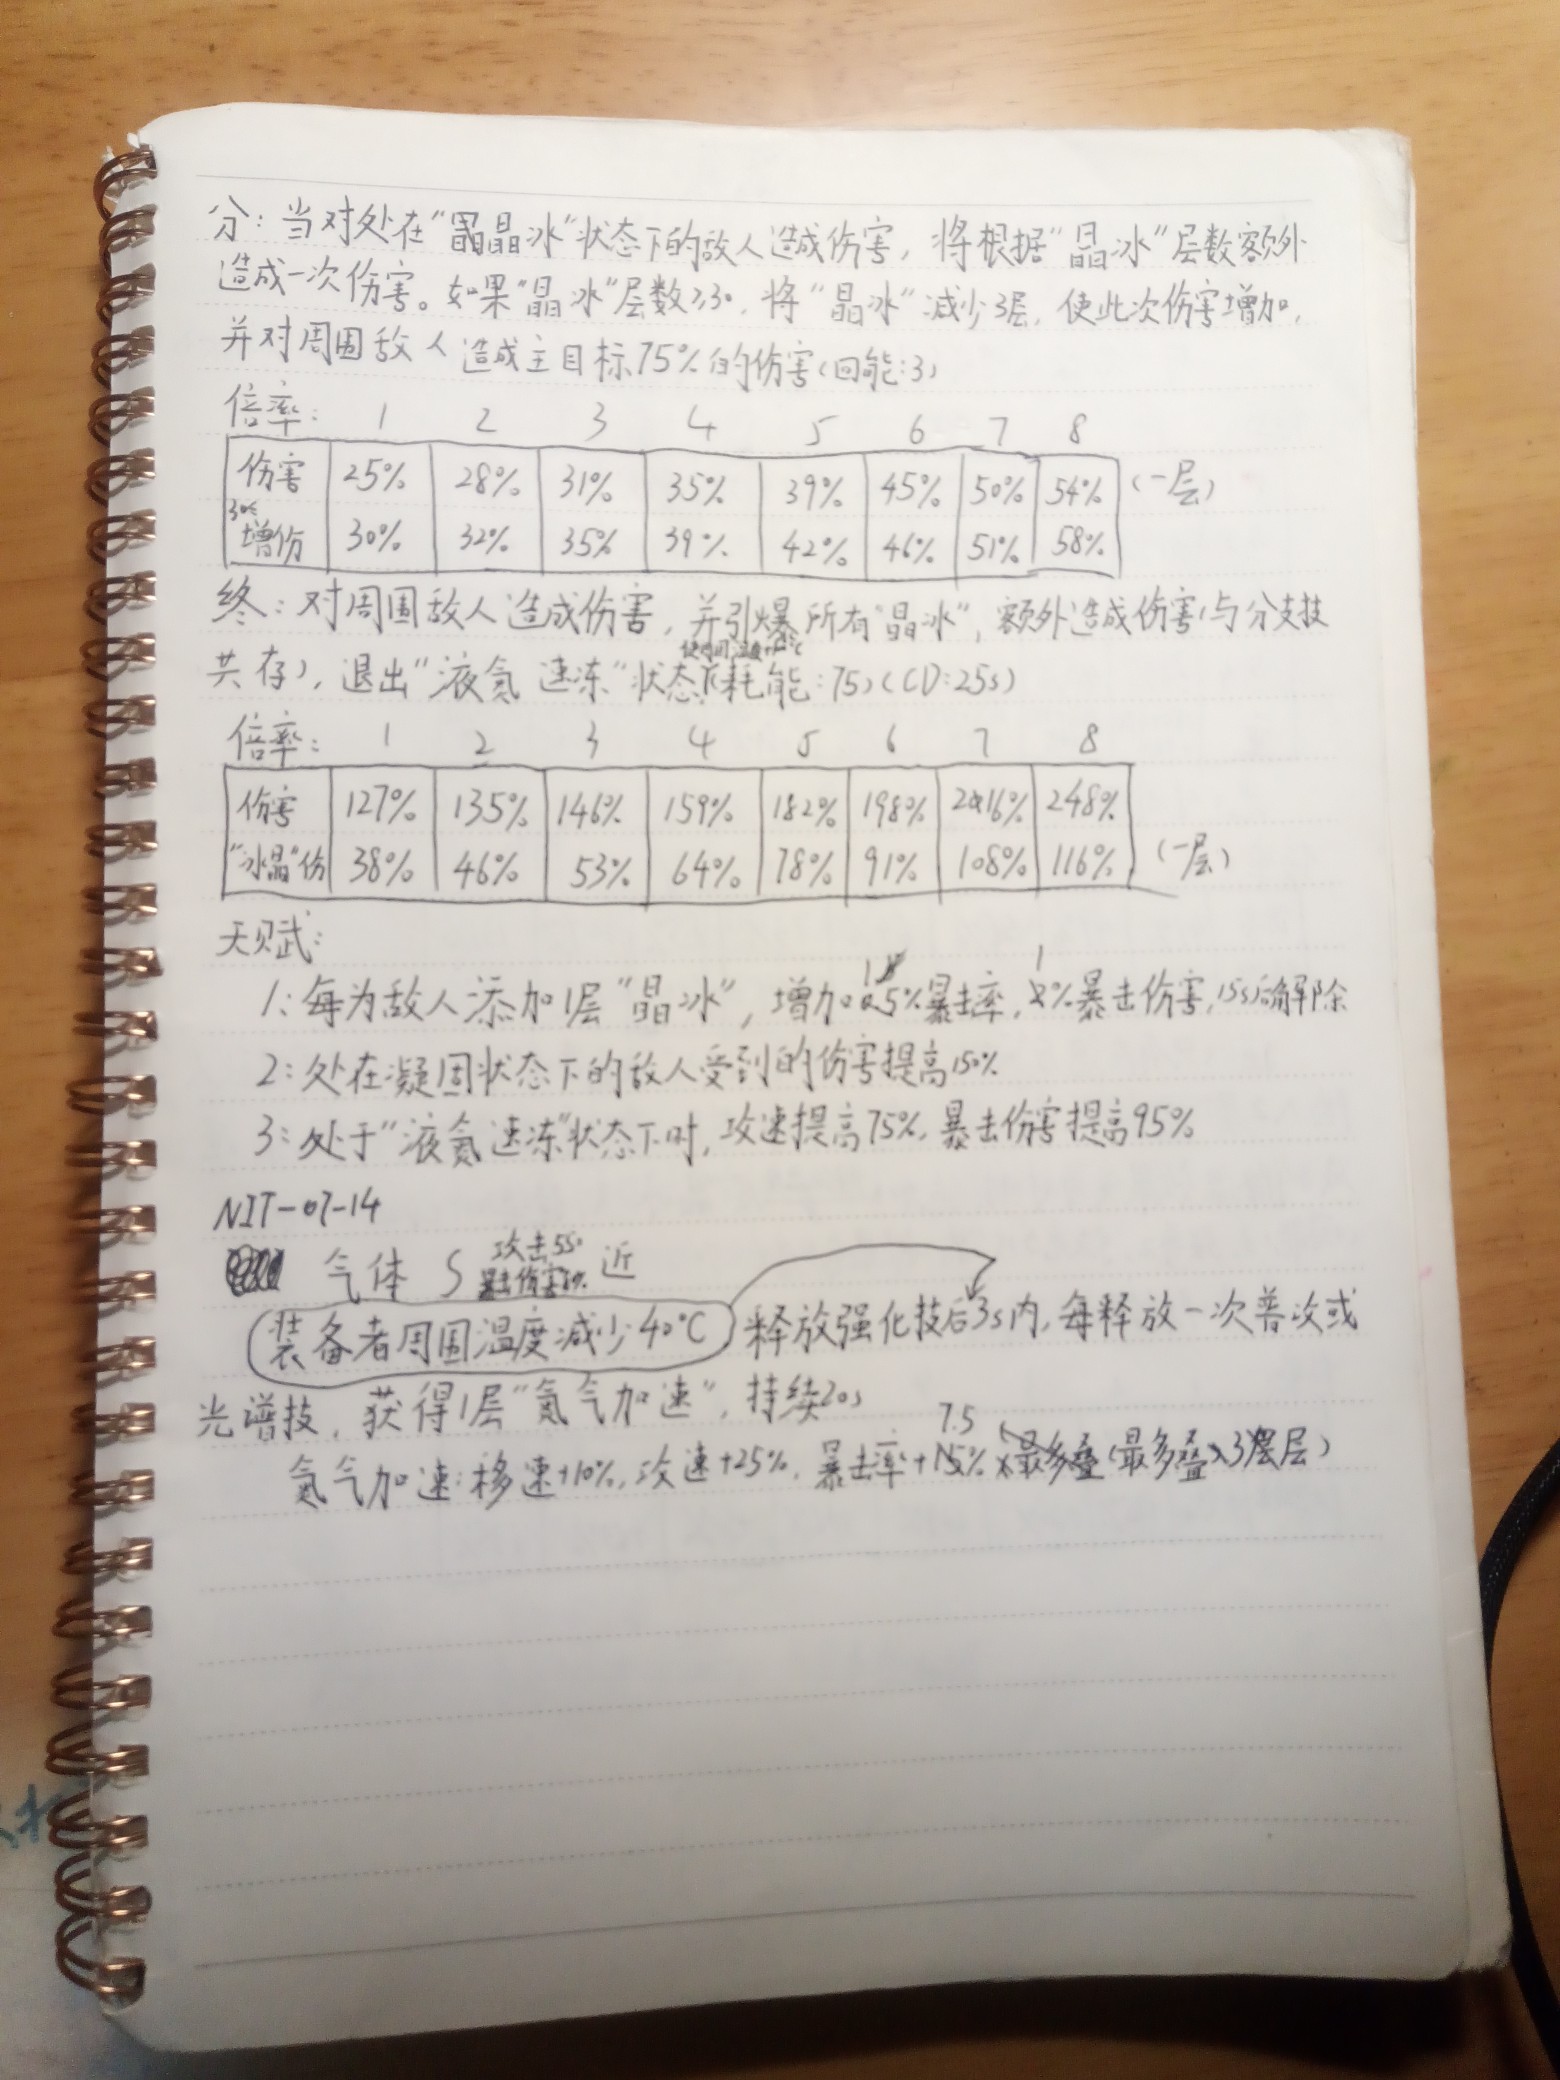 分：当对处在“晶冰”状态下的敌人造成伤害，将根据“晶冰”层数额外
造成一次伤害。如果“晶冰”层数≥30，将“晶冰”减少3层，使此次伤害增加，
并对周围敌人造成主目标75%的伤害（回能：3）
倍率： 1 2 3 4 5 6 7 8
伤害 25% 28% 31% 35% 39% 45% 50% 54% （一层）
增伤 30% 32% 35% 39% 42% 46% 51% 58%
终：对周围敌人造成伤害，并引爆所有“晶冰”，额外造成伤害（与分支技
共存），退出“液氮速冻”状态（耗能：75）（CD：25s）
倍率： 1 2 3 4 5 6 7 8
伤害 127% 135% 146% 159% 182% 198% 216% 248%
“冰晶”伤 38% 46% 53% 64% 78% 91% 108% 116% （一层）
天赋：
1：每为敌人添加1层“晶冰”，增加1%暴击率，1%暴击伤害，15s后解除
2：处在凝固状态下的敌人受到的伤害提高150%
3：处于“液氮速冻”状态下时，攻速提高75%，暴击伤害提高95%
NIT-07-14
气体 S 攻击550 近
暴击伤害
装备者周围温度减少40℃ 释放强化技后3s内，每释放一次普攻或
光谱技，获得1层“氮气加速”，持续20s
氮气加速：移速+10%，攻速+25%，暴击率+7.5%（最多叠3层）